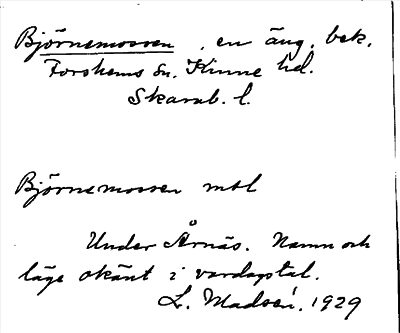 Björnemossen, en äng, bek.
Forshems sn. Kinne hd.
Skarab. l.
Björnemossen mbl
Under Årnäs. Namn och
läge okänt i vardagstal.
L. Madsén. 1929